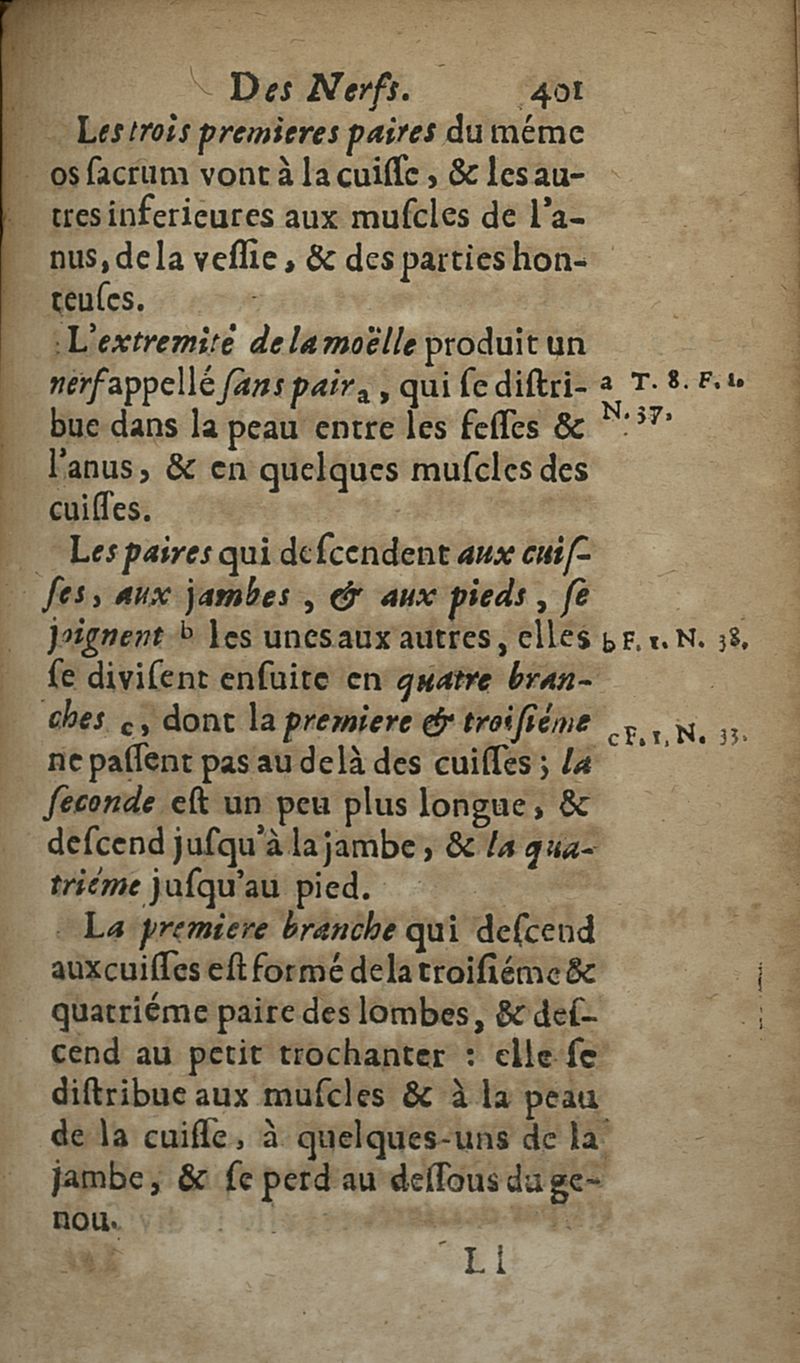 Des Nerfs. 401
Les trois premieres paires du méme
os ſacrum vont à la cuiſſe, & les au-
tres inferieures aux muſcles de l'a-
nus, de la veſſie, & des parties hon-
teuſes.
L'extremité de la moëlle produit un
nerf appellé ſans pair a, qui ſe diſtri- a T. 8. F. 1.
bue dans la peau entre les feſſes & N. 37.
l'anus, & en quelques muſcles des
cuiſſes.
Les paires qui deſcendent aux cuiſ-
ſes, aux jambes, & aux pieds, ſe
joignent b les unes aux autres, elles b F. 1. N. 38.
ſe diviſent enſuite en quatre bran-
ches c, dont la premiere & troiſiéme c F. 1. N. 33.
ne paſſent pas au delà des cuiſſes; la
ſeconde eſt un peu plus longue, &
deſcend juſqu'à la jambe, & la qua-
triéme juſqu'au pied.
La premiere branche qui deſcend
aux cuiſſes eſt formé de la troiſiéme &
quatriéme paire des lombes, & deſ-
cend au petit trochanter : elle ſe
diſtribue aux muſcles & à la peau
de la cuiſſe, à quelques-uns de la
jambe, & ſe perd au deſſous du ge-
nou.
Ll